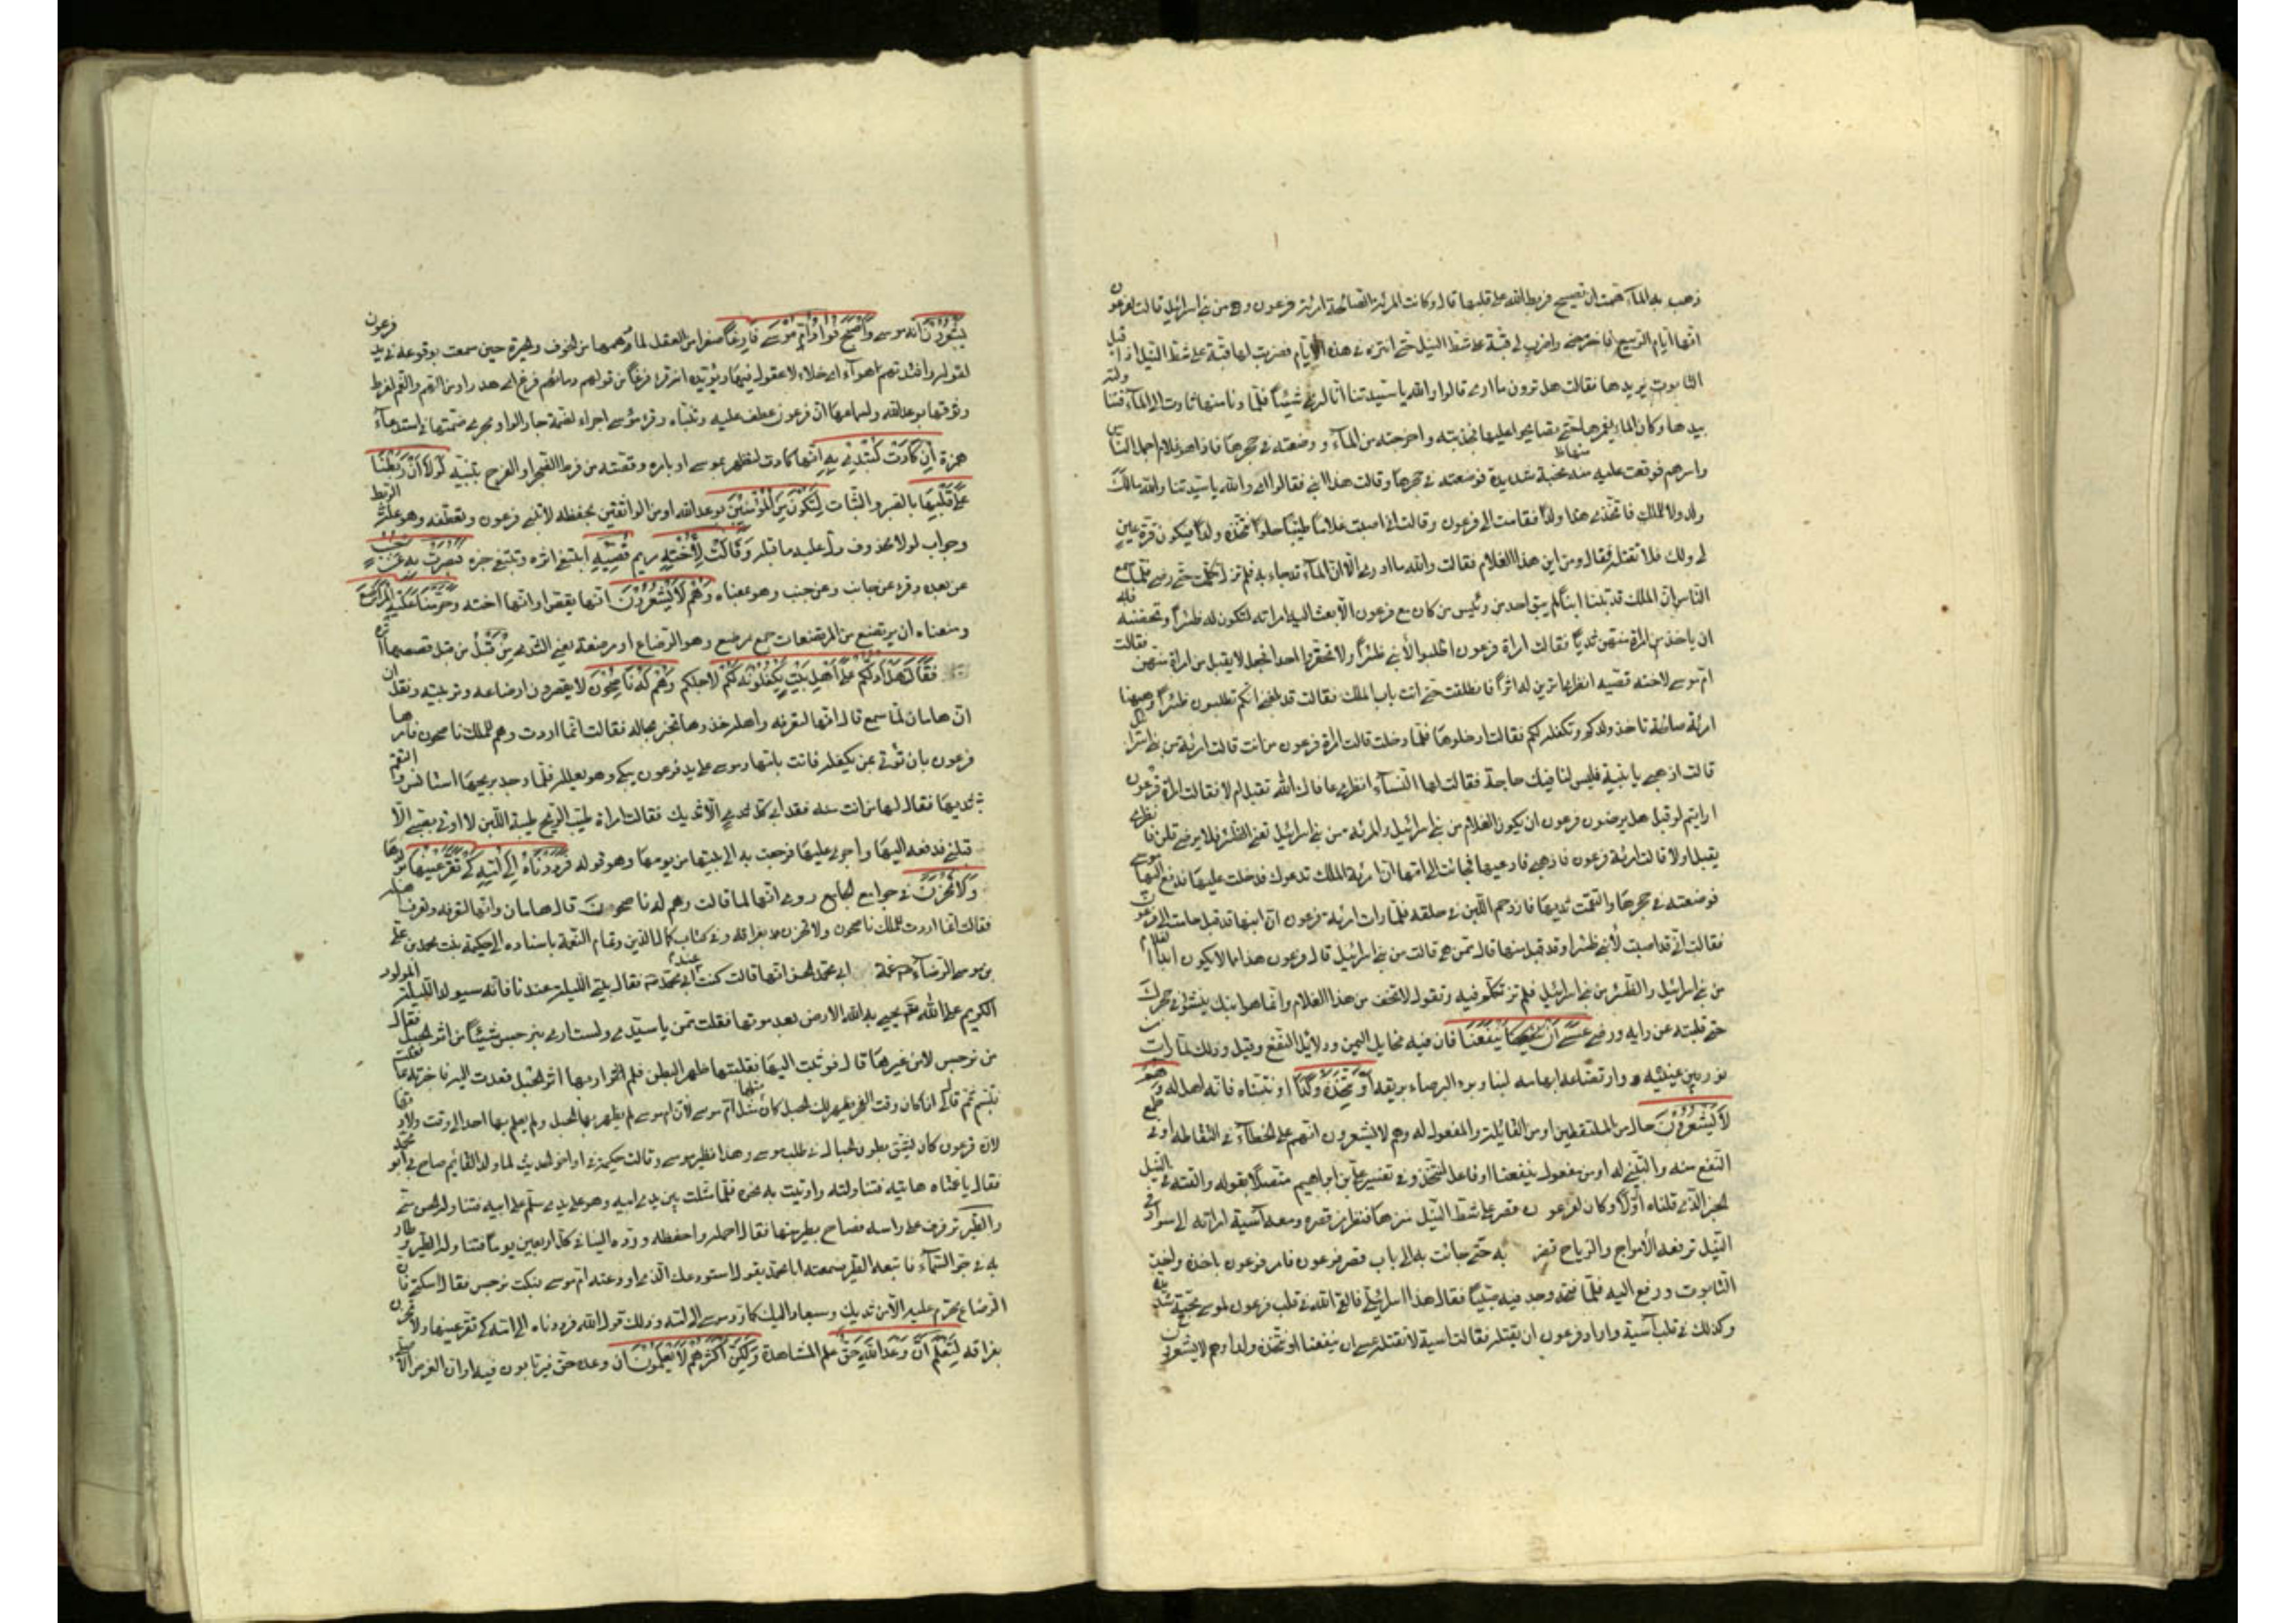 ذهب به الماء فهمت ان تصيح فربط الله على قلبها قال وكانت المرئة الصالحة امرئة فرعون وهى من بنى اسرائيل قالت لفرعون
انها ايام الربيع فاخرجنى واضرب لى قبة على شط النيل حتى اتنزه فى هذه الايام فضربت لها قبة على شط النيل اذ اقبل
التابوت يريدها فقالت هل ترون ما ارى قالوا والله يا سيدتنا انا لنرى شيئا فلما دنا منها ثارت الى الماء فتناولته
بيدها وكاد الماء يغمرها حتى تصايحوا عليها فجذبته واخرجته من الماء ووضعته فى حجرها فاذا هو غلام اجمل الناس
واسرهم فوقعت عليه منها محبة شديدة فوضعته فى حجرها وقالت هذا ابنى فقالوا اى والله يا سيدتنا والله مالك
ولد ولا للملك فاتخذى هذا ولدا فقامت الى فرعون وقالت انى اصبت غلاما طيبا حلوا نتخذه ولدا فيكون قرة عين
لى ولك فلا تقتله قال ومن اين هذا الغلام فقالت والله ما ادرى الا ان الماء قد جاء به فلم تزل به حتى رضى فلما سمع
الناس ان الملك قد تبنا ابنا لم يبق احد من رئيس من كان مع فرعون الا بعث اليه امراته لتكون له ظئرا وتحضنه فابى
ان ياخذ من امراة منهن ثديا فقالت امراة فرعون اطلبوا لابنى ظئرا ولا تحقروا احدا فجعل لا يقبل من امراة منهن فقالت
ام موسى لاخته قصيه انظرى اترين له اثرا فانطلقت حتى اتت باب الملك فقالت قد بلغنى انكم تطلبون ظئرا وههنا
امرئة صالحة تاخذ ولدكم وتكفله لكم فقالت ادخلوها فلما دخلت قالت امراة فرعون من انت قالت امرئة من بنى اسرائيل
قالت اذهبى يا بنية فليس لنا فيك حاجة فقالت لها النساء انظرى عافاك الله تقبل ام لا فقالت امراة فرعون
ارايتم لو قبل هل يرضون فرعون ان يكون الغلام من بنى اسرائيل والمرئة من بنى اسرائيل تعنى الظئر فلا يرضى قلن فانظرى
يقبل او لا قالت امرئة فرعون فاذهبى فادعيها فجائت الى امها ان امرئة الملك تدعوك فدخلت عليها فدفع اليها موسى
فوضعته فى حجرها والتقمت ثديها فازدحم اللبن فى حلقه فلما رات امرئة فرعون ان ابنها قد قبل قامت الى فرعون
فقالت انى قد اصبت لابنى ظئرا وقد قبل منها قال ممن هى قالت من بنى اسرائيل قال فرعون هذا ما لا يكون ابدا الغلام
من بنى اسرائيل والظئر من بنى اسرائيل فلم تزل تكلمه فيه وتقول لا تخف من هذا الغلام وانما هو ابنك ينشؤ فى حجرك
حتى قلبته عن رايه ورضى عَسٰى اَنْ يَنْفَعَنَا فان فيه مخايل اليمن ودلائل النفع وقيل وذلك لما رات
نور بين عينيه وارتضاعه ابهامه لبنا وبرء البرصاء بريقه اَوْ نَتَّخِذَهُ وَلَدًا او نتبناه فانه اهل له وَهُمْ
لَا يَشْعُرُوْنَ حال من الملتقطين او من القائلة والمقول له وهم لا يشعرون انهم على الخطاء فى التقاطه او فى طمع
النفع منه والتبنى له او من مفعول ينفعنا او فاعل نتخذ وفى تفسير على بن ابراهيم متصلا بقوله والقته فى النيل
لخبر الذى قلناه اولا وكان لفرعون قصر على شط النيل منزها فنظر من قصره ومعه آسية امراته الى سواد فى
النيل ترفعه الامواج والرياح تضر به حتى جائت به الى باب قصر فرعون فامر فرعون باخذه واخذت
التابوت ورفع اليه فلما فتحه وجد فيه صبيا فقال هذا اسرائيلى فالقى الله فى قلب فرعون لموسى محبة شديدة
وكذلك فى قلب آسية واراد فرعون ان يقتله فقالت آسية لا تقتله عسى ان ينفعنا او نتخذه ولدا وهم لا يشعرون
يَشْعُرُوْنَ انه موسى وَاَصْبَحَ فُوَادُ اُمِّ مُوْسٰى فَارِغًا صفرا من العقل لما دهمها من الخوف والحيرة حين سمعت بوقوعه فى يد فرعون
لقوله وافئدتهم هواء اى خلاء لا عقول فيها ويؤيده انه قرئ فرغا من قولهم دمائهم فرغ اى هدر او من الهم لفرط
وثوقها بوعد الله ولسماعها ان فرعون عطف عليه وتبناه وقرئ مؤسى اجراء لضمة جار الواو مجرى ضمتها فى استدعاء
همزة اِنْ كَادَتْ لَتُبْدِى بِهِ انها كادت لتظهر بموسى اى بامره وقصته من فرط الضجر او الفرح بتبنيه لَوْلَا اَنْ رَبَطْنَا
عَلٰى قَلْبِهَا بالصبر والثبات لِتَكُوْنَ مِنَ الْمُؤْمِنِيْنَ بوعد الله او من الواثقين بحفظه لا بتبنى فرعون وتعطفه وهو علة الربط
وجواب لولا محذوف دل عليه ما قبله وَقَالَتْ لِاُخْتِهِ مريم قُصِّيْهِ ابتغى اثره وتتبعى خبره فَبَصُرَتْ بِهِ عَنْ جُنُبٍ
عن بعد وقرئ عن جانب وعن جنب وهو بمعناه وَهُمْ لَا يَشْعُرُوْنَ انها تقص او انها اخته وَحَرَّمْنَا عَلَيْهِ الْمَرَاضِعَ
ومنعناه ان يرتضع من المرضعات جمع مرضع وهو الرضاع او موضعه يعنى الثدى مِنْ قَبْلُ من قبل قصها اثره
فَقَالَتْ هَلْ اَدُلُّكُمْ عَلٰى اَهْلِ بَيْتٍ يَكْفُلُوْنَهُ لَكُمْ لاجلكم وَهُمْ لَهُ نَاصِحُوْنَ لا يقصرون فى ارضاعه وتربيته ونقل
ان هامان لما سمع قال انها لتعرفه واهله خذوها حتى تخبر بحاله فقالت انما اردت وهم للملك ناصحون فامرها
فرعون بان تؤتى بمن يكفله فاتت بامها وموسى على يد فرعون يبكى وهو يعلله فلما وجد ريحها استانس والتقم
ثديها فقال لها من انت منه فقد ابى كل ثدى الا ثديك فقالت امراة طيب الريح طيبة اللبن لا اوتى بصبى الا
قبلنى فدفعه اليها واجرى عليها فرجعت به الى بيتها من يومها وهو قوله فَرَدَدْنَاهُ اِلٰى اُمِّهِ كَىْ تَقَرَّ عَيْنُهَا بولدها
وَلَا تَحْزَنَ فى جوامع الجامع روى انها لما قالت وهم له ناصحون قال هامان وانها لتعرفه وتعرف اهله
فقالت انما اردت للملك ناصحون ولا تحزن بفراقه وفى كتاب كمال الدين وتمام النعمة باسناده الى حكيمة بنت محمد بن على
بن موسى الرضا عمة ابى محمد الحسن انها قالت كنت عند ابى محمد فقال بتى الليلة عندنا فانه سيولد الليلة المولود
الكريم على الله يحيى به الله الارض بعد موتها فقلت ممن يا سيدى ولست ارى بنرجس شيئا من اثر الحبل فقال
من نرجس لا من غيرها قال فوثبت اليها فقلبتها ظهر البطن فلم ار بها اثر الحبل فعدت اليه فاخبرته بما فعلت
فتبسم ثم قال لى اذا كان وقت الفجر يظهر لك الحبل كان مثلها مثل ام موسى لان ام موسى لم يظهر بها الحبل ولم يعلم بها احد الى وقت ولادتها
لان فرعون كان يشق بطون الحبالى فى طلب موسى وهذا نظير موسى وقالت حكيمة فى اواخر الحديث لما ولد القائم صاح بى ابو محمد
فقال يا عمتاه هاتيه فتناولته واتيت به نحوه فلما مثلت بين يدى ابيه وهو على يدى سلم على ابيه فتناوله الحسن
والطير ترفرف على راسه فصاح بطير منها فقال احمله واحفظه ورده الينا فى كل اربعين يوما فتناوله الطير وطار
به فى جو السماء فاتبعه الطير فسمعته ابا محمد يقول استودعك الذى اودعته ام موسى فبكت نرجس فقال اسكتى فان
الرضاع محرم عليه الا من ثديك وسيعاد اليك كما رد موسى الى امه وذلك قول الله فرددناه الى امه كى تقر عينها ولا تحزن
بفراقه لِتَعْلَمَ اَنَّ وَعْدَ اللّٰهِ حَقٌّ علم المشاهدة وَلٰكِنَّ اَكْثَرَهُمْ لَا يَعْلَمُوْنَ ان وعده حق فيرتابون فيه او ان الغرض الاصلى